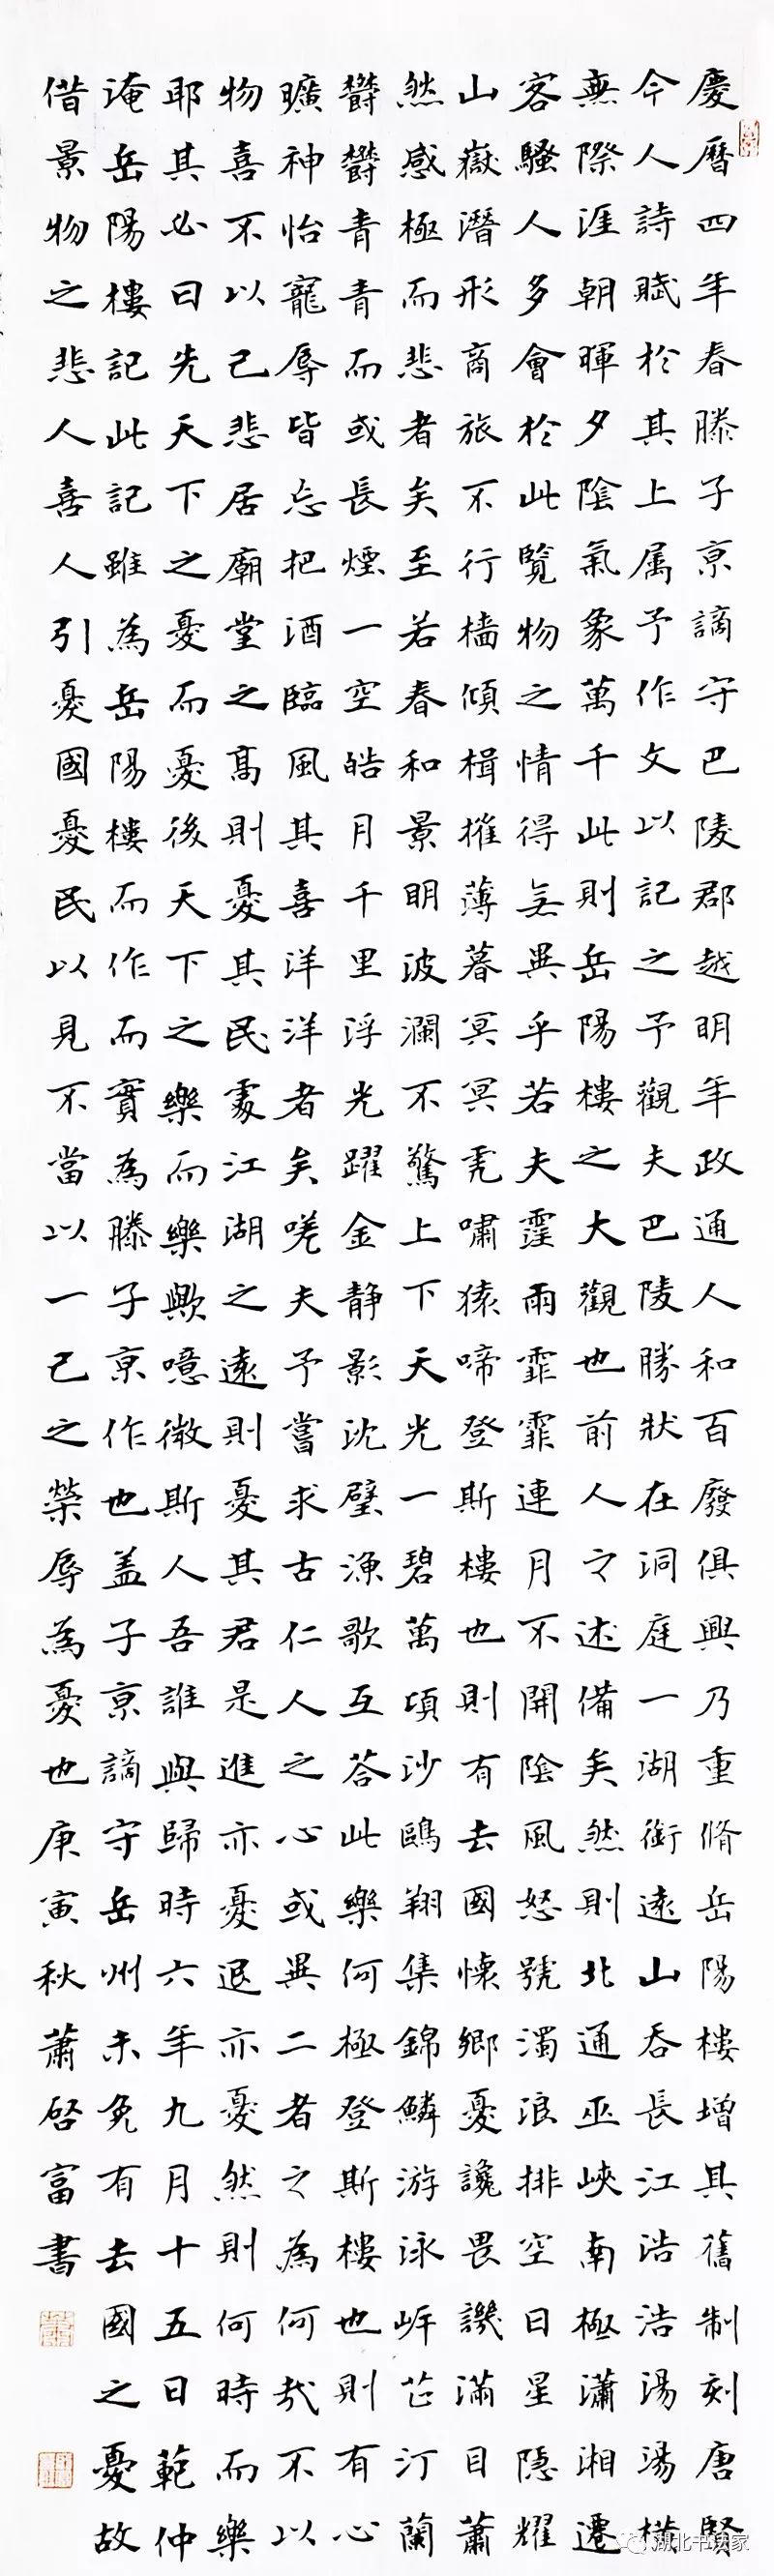 慶曆四年春滕子京謫守巴陵郡越明年政通人和百廢俱興乃重脩岳陽樓增其舊制刻唐賢
今人詩賦於其上属予作文以記之予觀夫巴陵勝狀在洞庭一湖銜遠山吞長江浩浩湯湯横
無際涯朝暉夕陰氣象萬千此則岳陽樓之大觀也前人之述備矣然則北通巫峽南極瀟湘遷
客騷人多會於此覽物之情得無異乎若夫霪雨霏霏連月不開陰風怒號濁浪排空日星隱耀
山嶽潛形商旅不行檣傾楫摧薄暮冥冥虎嘯猿啼登斯樓也則有去國懷鄉憂讒畏譏滿目蕭
然感極而悲者矣至若春和景明波瀾不驚上下天光一碧萬頃沙鷗翔集錦鱗游泳岸芷汀蘭
欝欝青青而或長煙一空皓月千里浮光躍金静影沈璧漁歌互荅此樂何極登斯樓也則有心
曠神怡寵辱皆忘把酒臨風其喜洋洋者矣嗟夫予嘗求古仁人之心或異二者之為何哉不以
物喜不以己悲居廟堂之高則憂其民處江湖之遠則憂其君是進亦憂退亦憂然則何時而樂
耶其必曰先天下之憂而憂後天下之樂而樂歟噫微斯人吾誰與歸時六年九月十五日範仲
淹岳陽樓記此記雖為岳陽樓而作而實為滕子京作也盖子京謫守岳州未免有去國之憂故
借景物之悲人喜人引憂國憂民以見不當以一己之榮辱為憂也庚寅秋蕭啓富書
湖北书法家